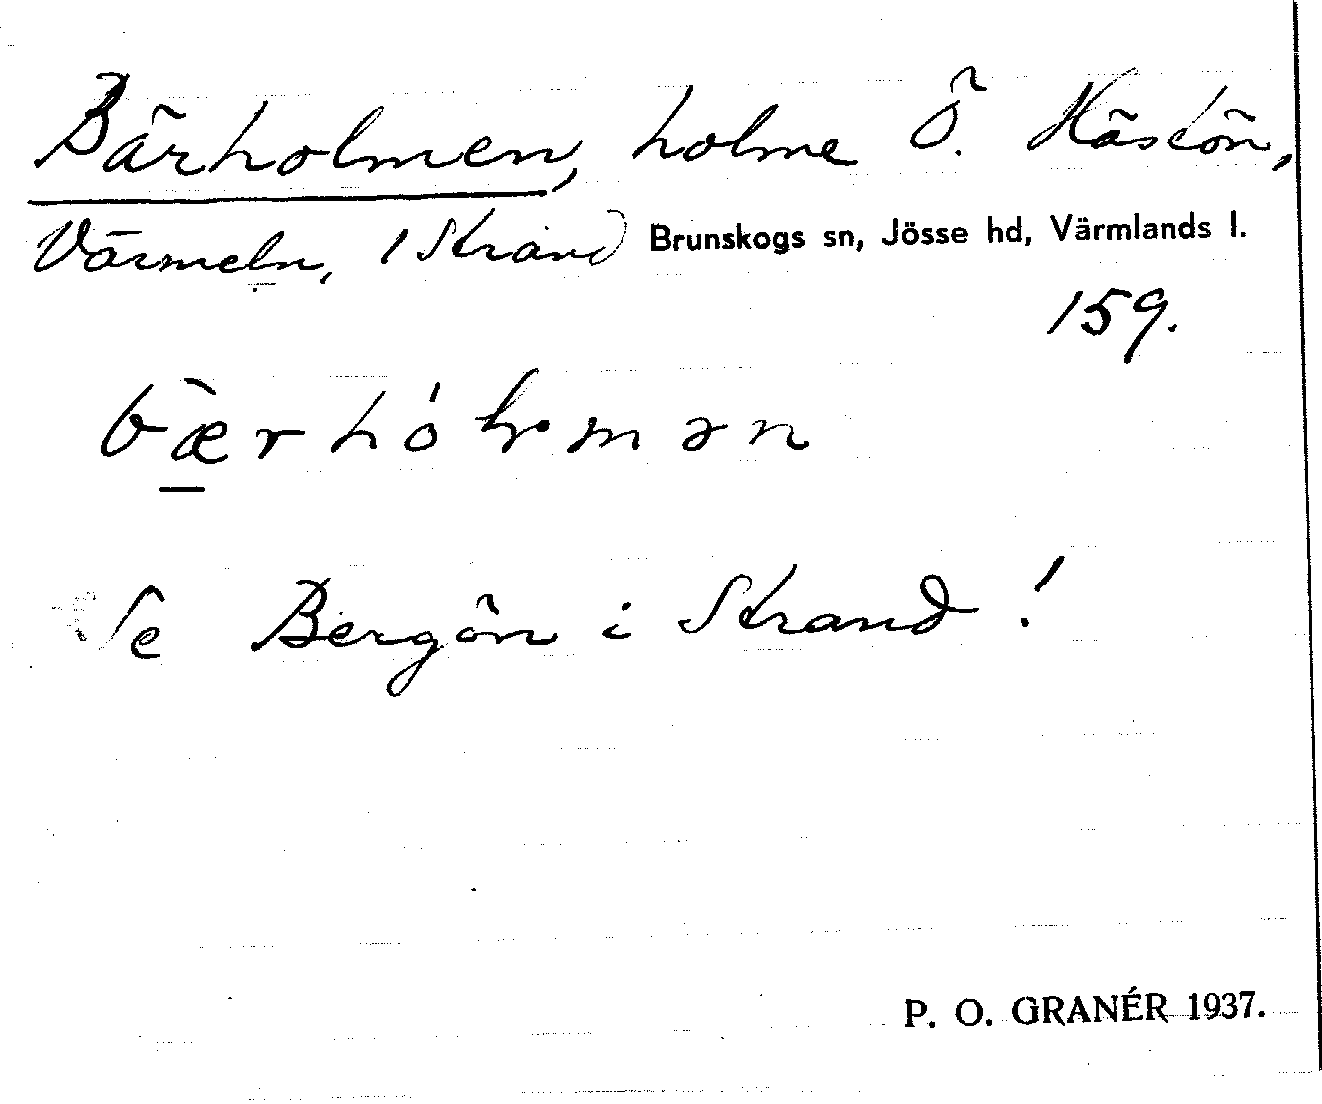 Bärholmen, holme Ö. Hästön,
Värmeln, i Strand Brunskogs sn, Jösse hd, Värmlands l.
159.
Se Bergön i Strand!
P. O. GRANÉR 1937.